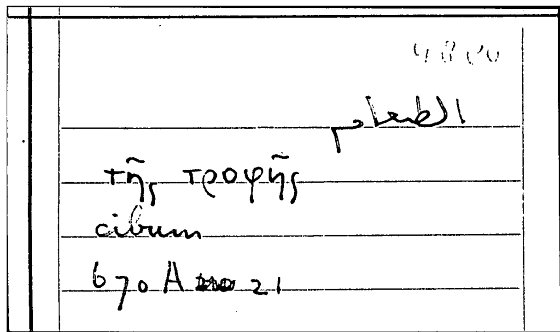 الطعام
τῆς τροφῆς
cibum
670 A 21